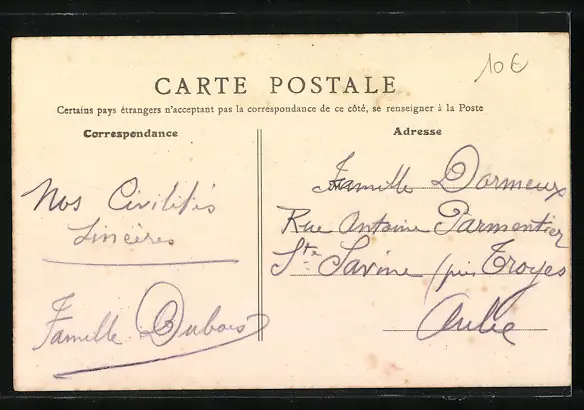 10€
CARTE POSTALE
Certains pays étrangers n'acceptant pas la correspondance de ce côté, se renseigner à la Poste
Correspondance
Nos Civilités
sincères
Famille Dubois
Adresse
Famille Dormeux
Rue Antoine Parmentier
Ste Savine (près Troyes
Aube